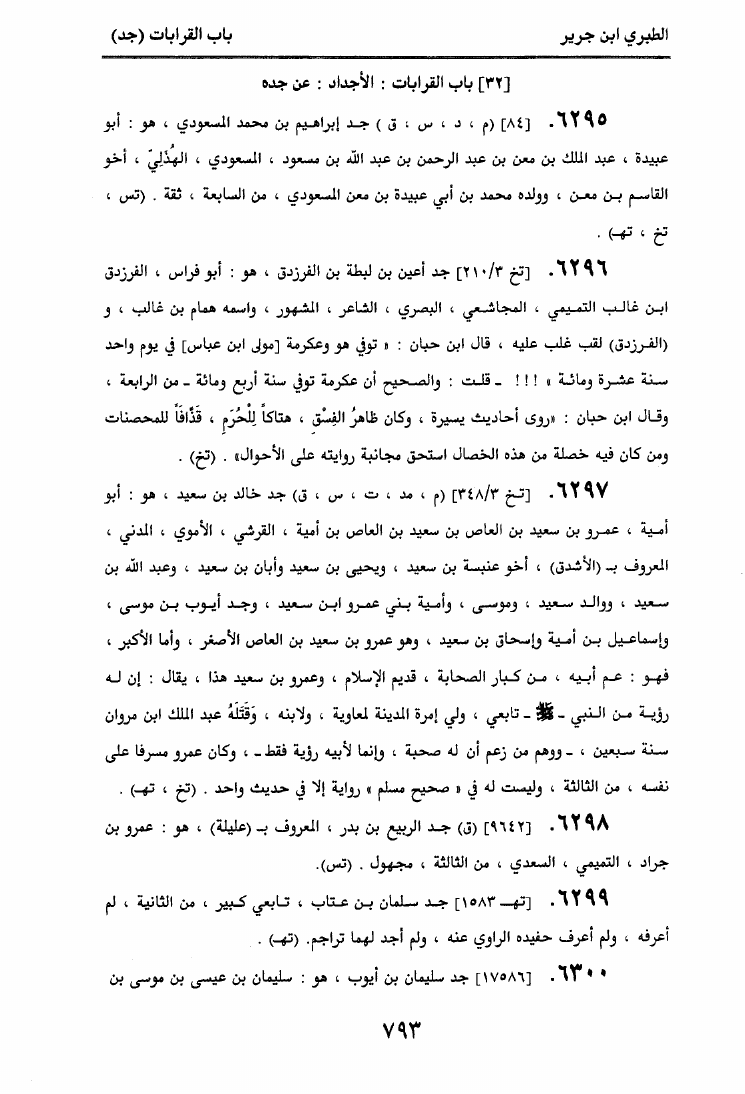 الطبري ابن جرير
باب القرابات (جد)
[٣٢] باب القرابات : الأجداد : عن جده
٦٢٩٥. [٨٤] (م ، د ، س ، ق ) جد إبراهيم بن محمد المسعودي ، هو : أبو
عبيدة ، عبد الملك بن معن بن عبد الرحمن بن عبد الله بن مسعود ، المسعودي ، الهُذَلِيّ ، أخو
القاسم بن معن ، وولده محمد بن أبي عبيدة بن معن المسعودي ، من السابعة ، ثقة . (تس ،
تخ ، تهـ) .
٦٢٩٦. [تخ ٢١٠/٣] جد أعين بن لبطة بن الفرزدق ، هو : أبو فراس ، الفرزدق
ابن غالب التميمي ، المجاشعي ، البصري ، الشاعر ، المشهور ، واسمه همام بن غالب ، و
(الفرزدق) لقب غلب عليه ، قال ابن حبان : « توفي هو وعكرمة [مولى ابن عباس] في يوم واحد
سنة عشرة ومائة » !!! ـ قلت : والصحيح أن عكرمة توفي سنة أربع ومائة ـ من الرابعة ،
وقال ابن حبان : «روى أحاديث يسيرة ، وكان ظاهرُ الفِسْقِ ، هتاكاً لِلْحُرَمِ ، قَذَّافاً للمحصنات
ومن كان فيه خصلة من هذه الخصال استحق مجانبة روايته على الأحوال» . (تخ) .
٦٢٩٧. [تخ ٣٤٨/٣] (م ، مد ، ت ، س ، ق) جد خالد بن سعيد ، هو : أبو
أمية ، عمرو بن سعيد بن العاص بن سعيد بن العاص بن أمية ، القرشي ، الأموي ، المدني ،
المعروف بـ (الأشدق) ، أخو عنبسة بن سعيد ، ويحيى بن سعيد وأبان بن سعيد ، وعبد الله بن
سعيد ، ووالد سعيد ، وموسى ، وأمية بني عمرو ابن سعيد ، وجد أيوب بن موسى ،
وإسماعيل بن أمية وإسحاق بن سعيد ، وهو عمرو بن سعيد بن العاص الأصغر ، وأما الأكبر ،
فهو : عم أبيه ، من كبار الصحابة ، قديم الإسلام ، وعمرو بن سعيد هذا ، يقال : إن له
رؤية من النبي ـ ﷺ ـ تابعي ، ولي إمرة المدينة لمعاوية ، ولابنه ، وَقَتَلَهُ عبد الملك ابن مروان
سنة سبعين ، ـ ووهم من زعم أن له صحبة ، وإنما لأبيه رؤية فقط ـ ، وكان عمرو مسرفا على
نفسه ، من الثالثة ، وليست له في « صحيح مسلم » رواية إلا في حديث واحد . (تخ ، تهـ) .
٦٢٩٨. [٩٦٤٢] (ق) جد الربيع بن بدر ، المعروف بـ (عليلة) ، هو : عمرو بن
جراد ، التميمي ، السعدي ، من الثالثة ، مجهول . (تس).
٦٢٩٩. [تهـ ١٥٨٣] جد سلمان بن عتاب ، تابعي كبير ، من الثانية ، لم
أعرفه ، ولم أعرف حفيده الراوي عنه ، ولم أجد لهما تراجم. (تهـ) .
٦٣٠٠. [١٧٥٨٦] جد سليمان بن أيوب ، هو : سليمان بن عيسى بن موسى بن
٧٩٣